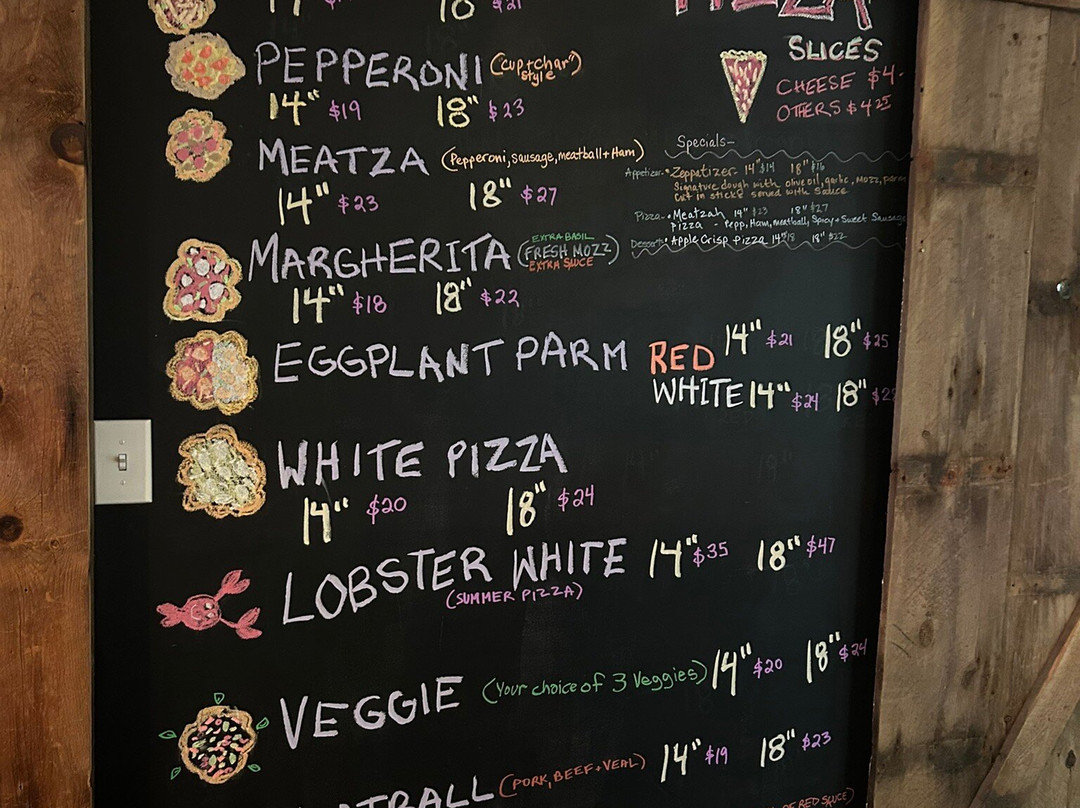 18" $21
PIZZA
PEPPERONI ("cup+char" style)
14" $19 18" $23
SLICES
CHEESE $4.
OTHERS $4.25
MEATZA (Pepperoni, sausage, meatball + Ham)
14" $23 18" $27
Specials-
Appetizer- • Zeppatizer- 14" $14 18" $16
Signature dough with olive oil, garlic, mozz, parm
cut in sticks served with Sauce
Pizza- • Meatzah 14" $23 18" $27
pizza - Pepp, Ham, meatball, Spicy + Sweet Sausage
Dessert- • Apple Crisp Pizza 14" $18 18" $22
MARGHERITA (EXTRA BASIL
FRESH MOZZ)
EXTRA SAUCE
14" $18 18" $22
EGGPLANT PARM RED 14" $21 18" $25
WHITE 14" $24 18"
WHITE PIZZA
14" $20 18" $24
LOBSTER WHITE 14" $35 18" $47
(SUMMER PIZZA)
VEGGIE (Your choice of 3 Veggies) 14" $20 18" $24
TBALL (PORK, BEEF + VEAL) 14" $19 18" $23
OF RED SAUCE)